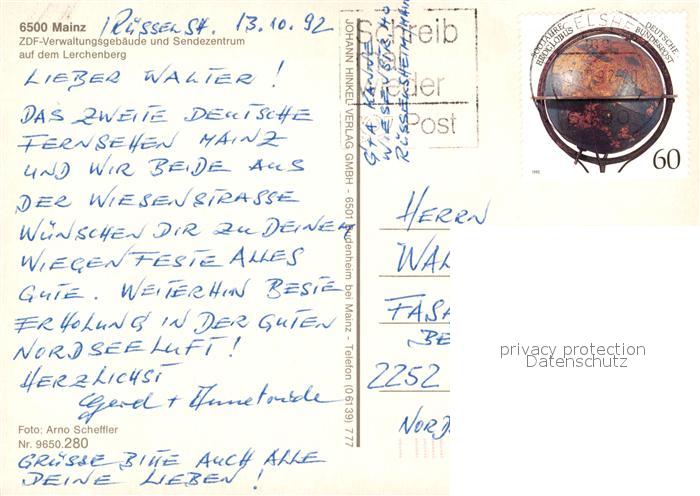 6500 Mainz
ZDF-Verwaltungsgebäude und Sendezentrum
auf dem Lerchenberg
RÜSSELSH. 13.10.92
LIEBER WALTER!
DAS ZWEITE DEUTSCHE
FERNSEHEN MAINZ
UND WIR BEIDE AUS
DER WIESENSTRASSE
WÜNSCHEN DIR ZU DEINEM
WIEGENFESTE ALLES
GUTE. WEITERHIN BESTE
ERHOLUNG IN DER GUTEN
NORDSEELUFT!
HERZLICHST
Gerd + Annetraude
Foto: Arno Scheffler
Nr. 9650.280
GRÜSSE BITTE AUCH ALLE
DEINE LIEBEN!
JOHANN HINKEL VERLAG GMBH - 6501 Budenheim bei Mainz - Telefon (06139) 777
G+A KANNE
WIESENSTR.
RÜSSELSHEIM/MAIN
Schreib
wieder
Post
500 JAHRE
ERDGLOBUS
DEUTSCHE
BUNDESPOST
60
1992
HERRN
WAL
FASA
BE
2252
NORD
privacy protection
Datenschutz